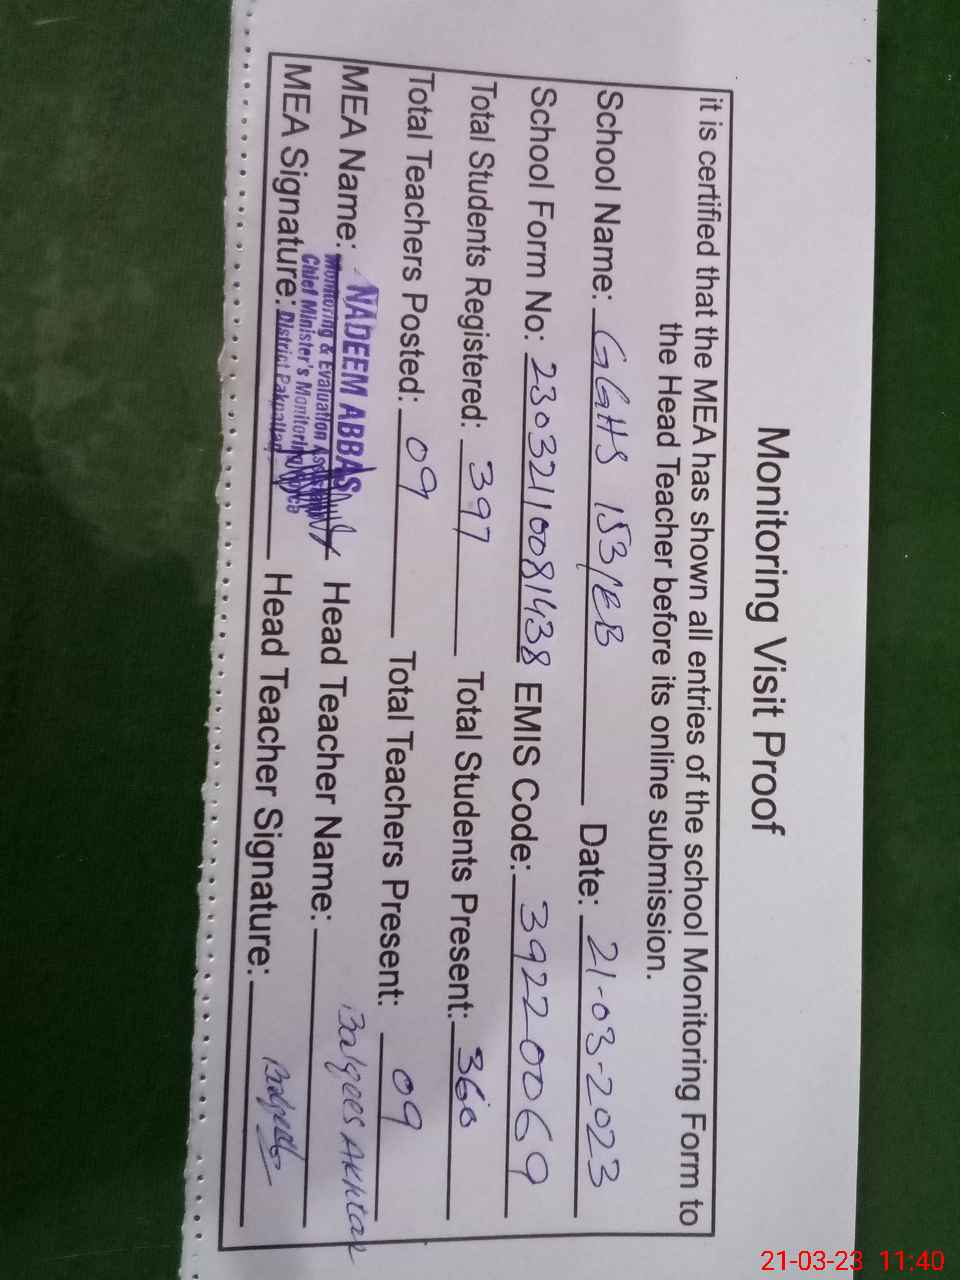 Monitoring Visit Proof
it is certified that the MEA has shown all entries of the school Monitoring Form to
the Head Teacher before its online submission.
School Name: GGHS 153/EB Date: 21-03-2023
School Form No: 23032110081438 EMIS Code: 39220069
Total Students Registered: 397 Total Students Present: 360
Total Teachers Posted: 09 Total Teachers Present: 09
MEA Name: NADEEM ABBAS Head Teacher Name: Balqees Akhtar
Monitoring & Evaluation
Chief Minister's Monitoring
MEA Signature: District Pakpattan Head Teacher Signature: Balqees
21-03-23 11:40